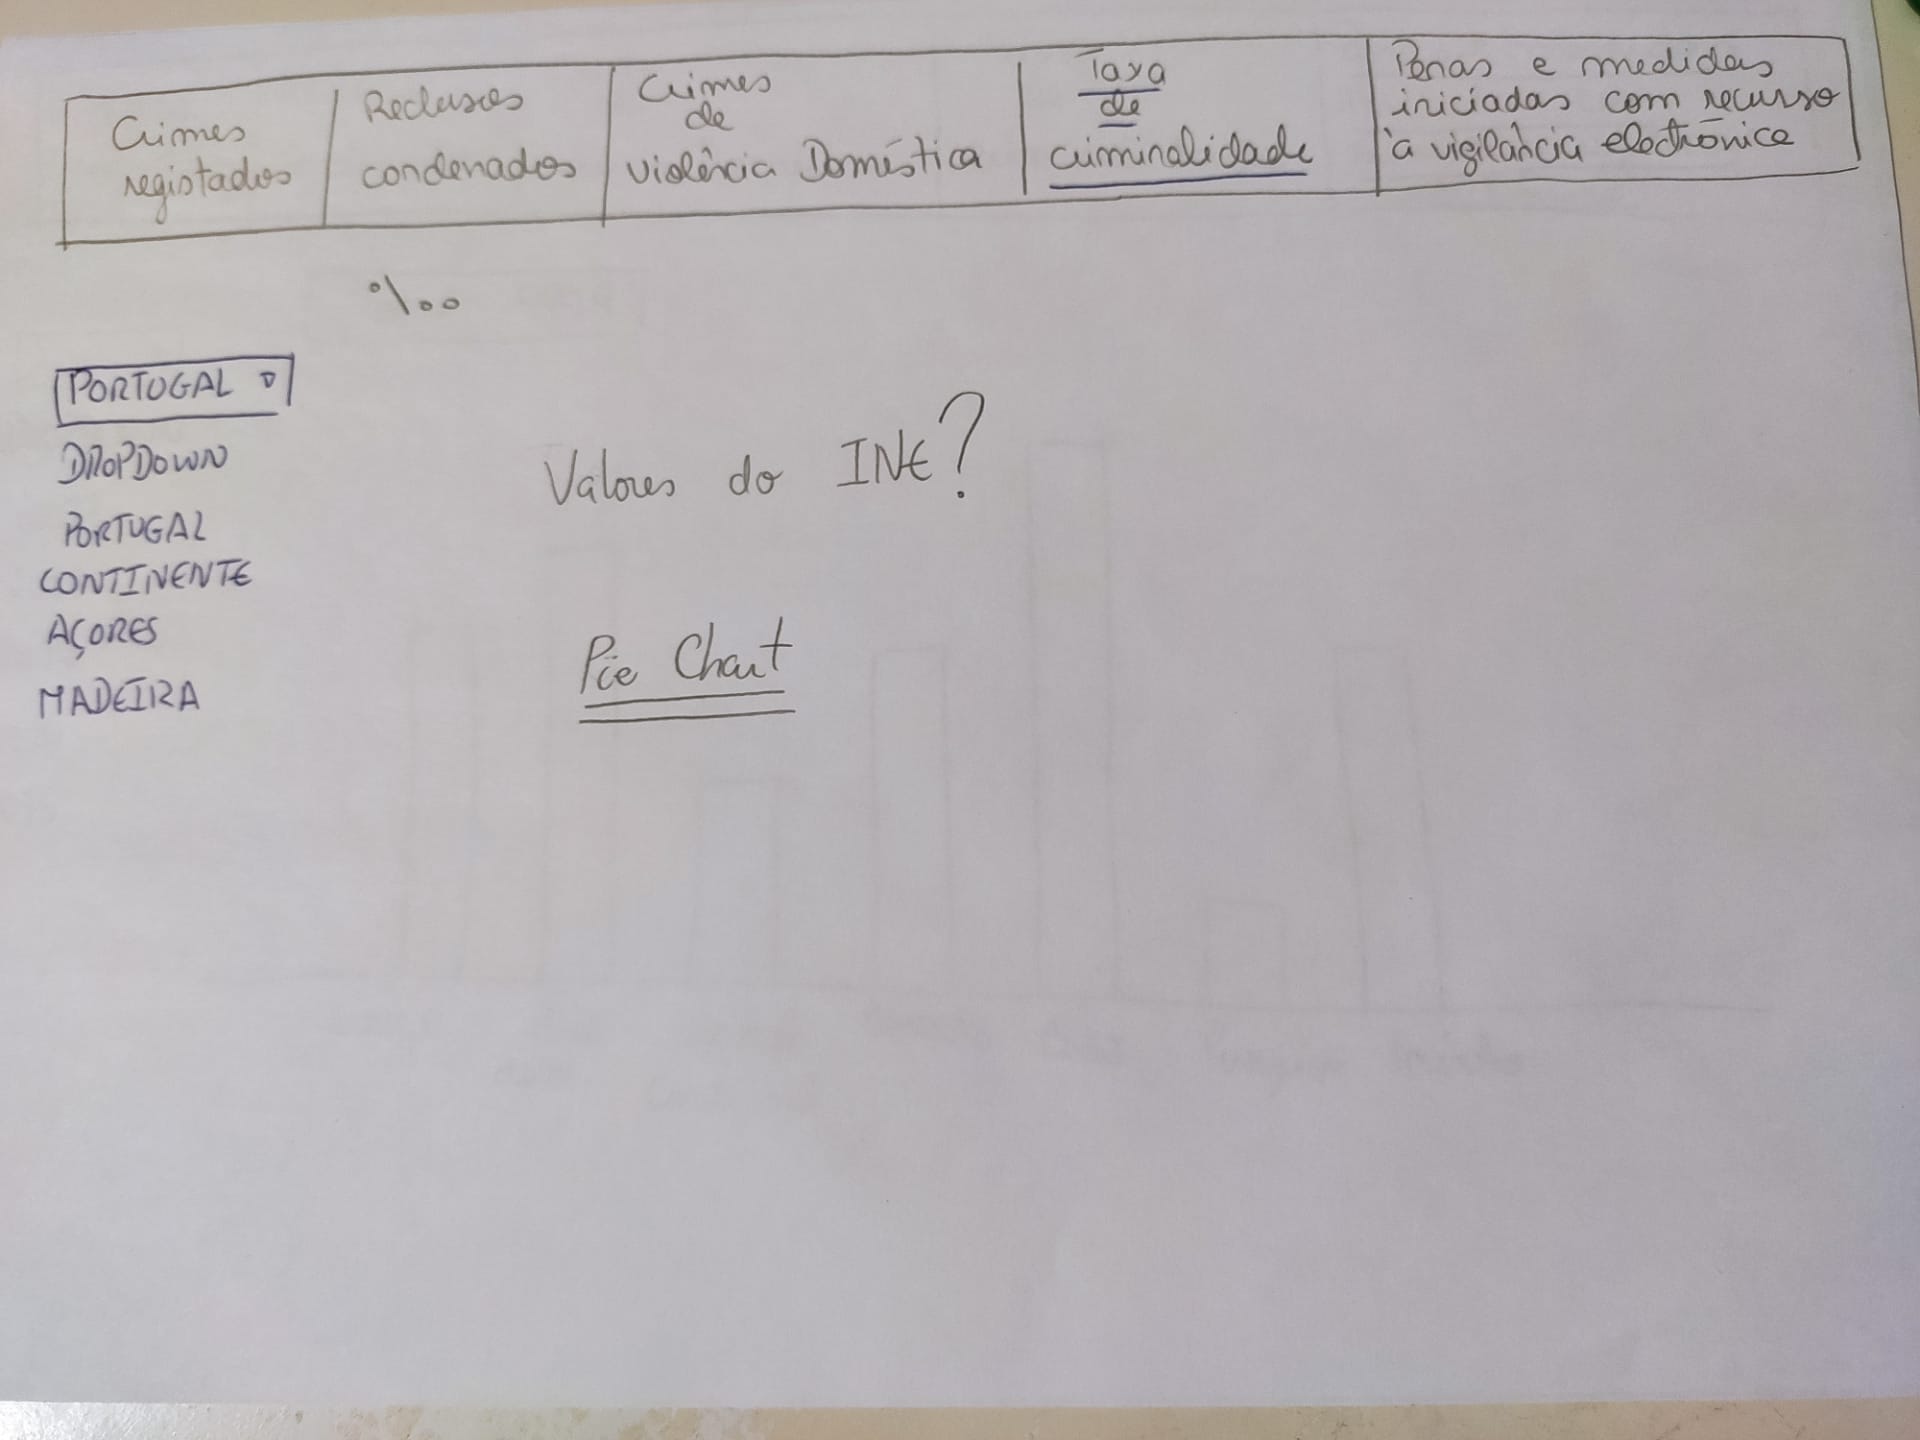 Crimes
registados
Reclusos
condenados
Crimes
de
violência Doméstica
Taxa
de
criminalidade
Penas e medidas
iniciadas com recurso
à vigilância electrónica
‰
PORTUGAL
DROPDOWN
PORTUGAL
CONTINENTE
AÇORES
MADEIRA
Valores do INE?
Pie Chart